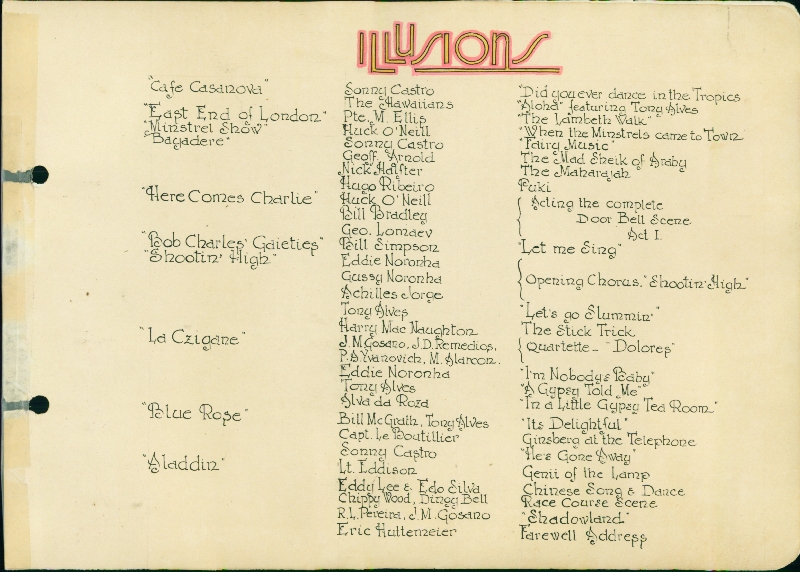 ILLUSIONS
"Cafe Casanova" Sonny Castro "Did you ever dance in the Tropics
The Hawaiians "Aloha" featuring Tony Alves
"East End of London" Pte. M. Ellis "The Lambeth Walk"
"Minstrel Show" Huck O'Neill "When the Minstrels came to Town"
"Bagadere" Sonny Castro "Fairy Music"
Geoff. Arnold The Mad Sheik of Araby
Nick Halfter The Maharajah
Hugo Ribeiro Fuki
"Here Comes Charlie" Huck O'Neill Acting the complete
Bill Bradley Door Bell Scene
Geo. Lomaev Act I.
"Bob Charles' Gaieties" Bill Simpson "Let me Sing"
"Shootin' High" Eddie Noronha
Gussy Noronha Opening Chorus, "Shootin' High"
Achilles Jorge
Tony Alves "Let's go Slummin'"
Harry Mac Naughton The Stick Trick
"La Czigane" J.M. Gosano, J.D. Remedios, Quartette - "Dolores"
P.A. Yvanovich, M. Alarcon.
Eddie Noronha "I'm Nobody's Baby"
Tony Alves "A Gypsy Told Me"
Alva da Roza "In a Little Gypsy Tea Room"
"Blue Rose" Bill McGrath, Tony Alves "Its Delightful"
Capt. Le Boutillier Ginsberg at the Telephone
Sonny Castro "He's Gone Away"
"Aladdin" Lt. Eddison Genii of the Lamp
Eddy Lee & Edo Silva Chinese Song & Dance
Chippy Wood, Dingy Bell Race Course Scene
R.L. Pereira, J.M. Gosano "Shadowland"
Eric Huttemeier Farewell Address